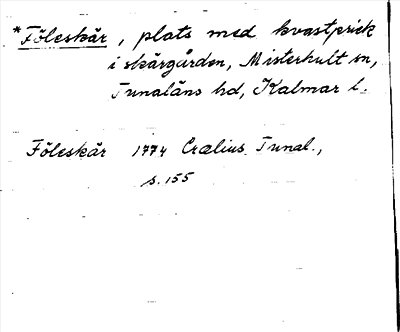 *Föleskär, plats med kvastprick
i skärgården, Misterhult sn,
Tunaläns hd, Kalmar l.
Föleskär 1774 Crælius Tunal.,
s. 155